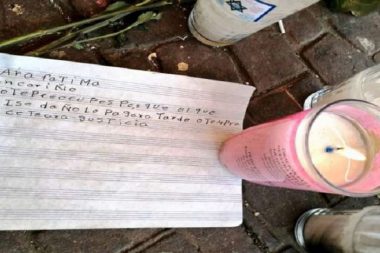 Ara Fatima
n cariñe
o te preocupes Por que el que
Iso daño Lo pagara tarde o tempra
ce Teara gusticia